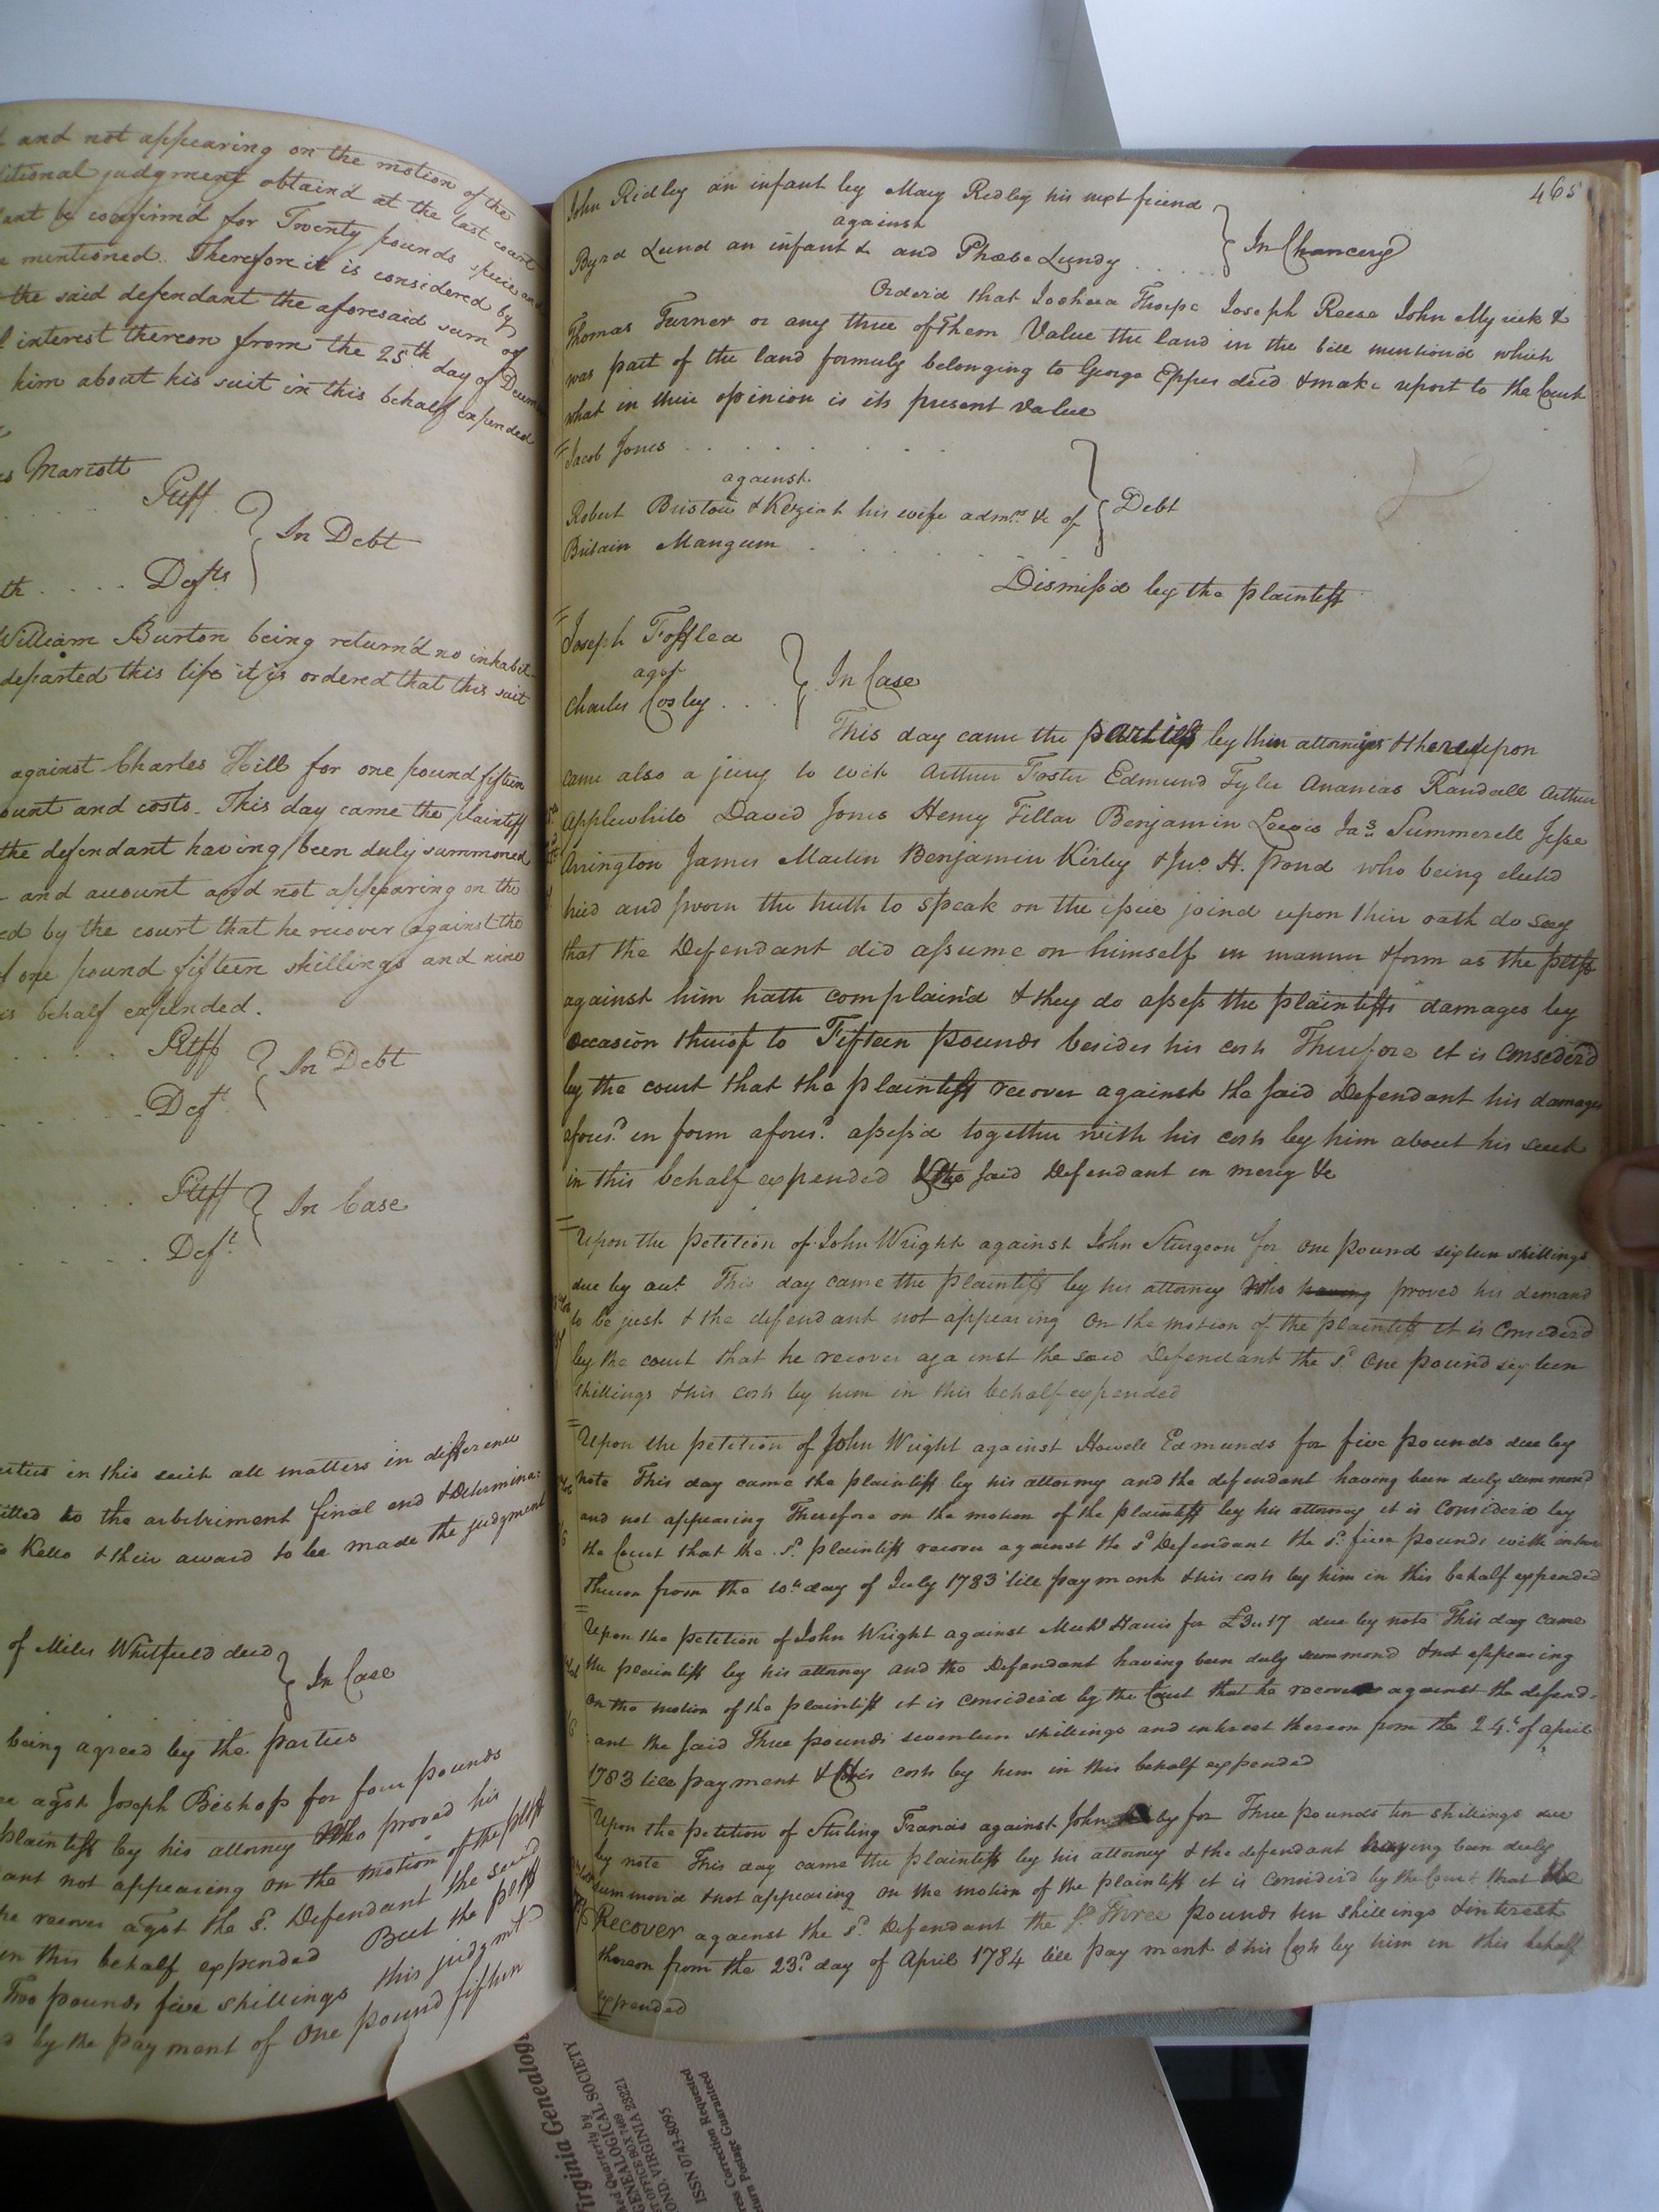 and not appearing on the motion of the
judgment obtaind at the last court
be confirmd for Twenty pounds specie and
mentioned. Therefore it is considered by
the said defendant the aforesaid sum of
interest thereon from the 25th day of Decem
him about his suit in this behalf expended
Mariott
Pltff
In Debt
Defts
William Burton being return'd no inhabit-
departed this life it is ordered that this suit
against Charles Hill for one pound fifteen
and costs. This day came the plaintiff
the defendant having been duly summoned
and account and not appearing on the
by the court that he recover against the
one pound fifteen shillings and nine
behalf expended.
Pltff
In Debt
Deft.
Pltff
In Case
Deft.
in this suit all matters in difference
to the arbitriment final end & Determina:
Kello & their award to be made the judgment
of Miles Whitfield decd
In Case
being agreed by the parties
agst Joseph Bishop for four pounds
plaintiff by his attorney Who proved his
not appearing on the motion of the pltff
recover agst the sd. Defendant the said
in this behalf expended But the pltff
Two pounds five shillings this judgmt
by the payment of One pound fifteen
465
John Ridley an infant by Mary Ridley his next friend
against
In Chancery
Byrd Lund an infant & and Phœbe Lundy . . . . .
Orderd that Joshua Thorpe Joseph Reese John Myrick &
Thomas Turner or any three of Them Value the land in the bill mentiond which
was part of the land formerly belonging to George Epps decd & make report to the Court
what in their opinion is its present Value
Jacob Jones . . . . . . .
against
Debt
Robert Bristow & Keziah his wife admrs &c of
Britain Mangum . . . . . .
Dismiss'd by the plaintiff
Joseph Fofflea
agst
In Case
Charles Cosby . . . .
This day came the parties by their attorneys & thereupon
came also a jury to wit Arthur Foster Edmund Tyler Ananias Randall Arthur
Applewhite David Jones Henry Tillar Benjamin Lewis Jas. Summerell Jesse
Arrington James Martin Benjamin Kirby & Jno. H. Proud who being elected
tried and sworn the truth to speak on the issue joind upon their oath do say
that the Defendant did assume on himself in manner & form as the pltff
against him hath complain'd & they do assess the plaintiffs damages by
occasion thereof to Fifteen pounds besides his costs Therefore it is Consider'd
by the court that the plaintiff recover against the said Defendant his damages
aforesd. in form aforesd. assess'd together with his costs by him about his suit
in this behalf expended & the said Defendant in mercy &c
Upon the petition of John Wright against John Sturgeon for One pound sixteen shillings
due by acct. This day came the plaintiff by his attorney Who having proved his demand
to be just & the defendant not appearing On the motion of the plaintiff it is Consider'd
by the court that he recover against the said Defendant the sd. One pound sixteen
shillings & his costs by him in this behalf expended
Upon the petition of John Wright against Howell Edmunds for five pounds due by
note This day came the plaintiff by his attorney and the defendant having been duly summond
and not appearing Therefore on the motion of the plaintiff by his attorney it is Considerd by
the Court that the sd. plaintiff recover against the sd Defendant the sd. five pounds with inter
thereon from the 10th day of July 1783 till payment & his costs by him in this behalf expended
Upon the petition of John Wright against Harris for £3..17 due by note This day came
the plaintiff by his attorney and the Defendant having been duly summond & not appearing
On the motion of the plaintiff it is Considerd by the Court that he recover against the defend-
ant the said Three pounds seventeen shillings and interest thereon from the 24t. of april
1783 till payment & his costs by him in this behalf expended
Upon the petition of Sterling Francis against John for Three pounds ten shillings due
by note This day came the plaintiff by his attorney & the defendant having been duly
summond & not appearing On the motion of the plaintiff it is Considerd by the Court that he
Recover against the sd. Defendant the sd. Three pounds ten shillings & interest
thereon from the 23d. day of April 1784 till payment & his Costs by him in this behalf
expended
Virginia Genealog
Quarterly by
GENEALOGICAL SOCIETY
OFFICE BOX 7469
RICHMOND, VIRGINIA 23221
ISSN 0743-8095
Address Correction Requested
Return Postage Guaranteed